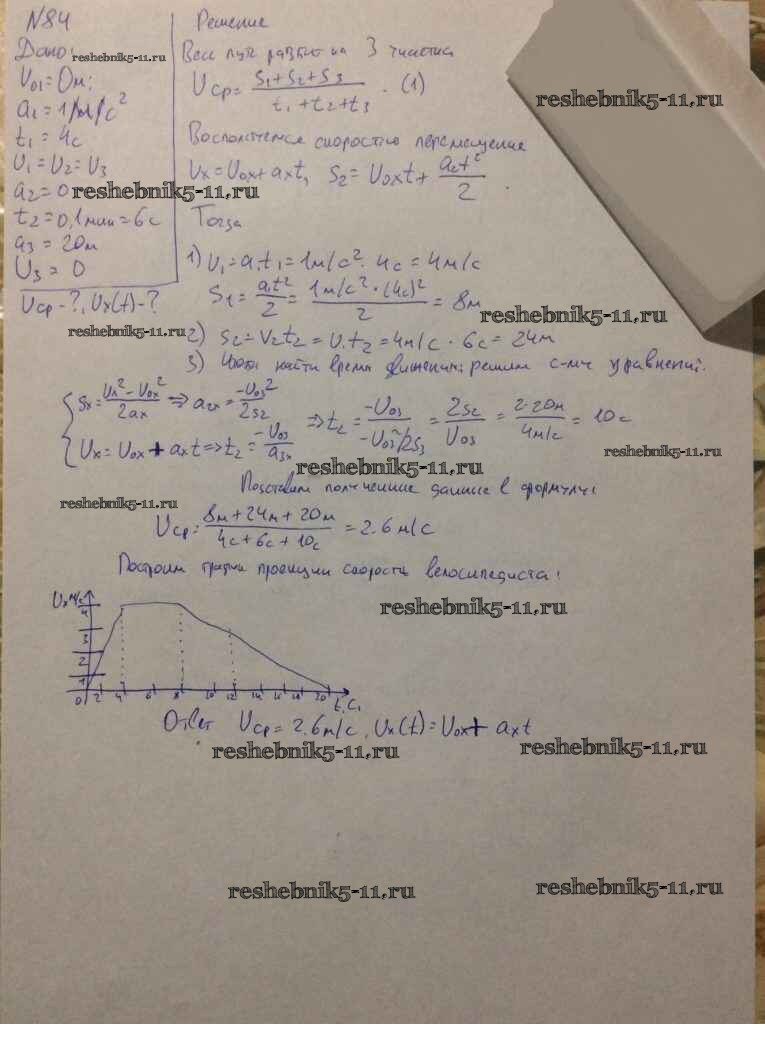 N84
Дано:
V01=0м;
a1=1м/с²
t1=4с
V1=V2=V3
a2=0
t2=0,1мин=6с
a3=20м
V3=0
Vср-?, Vx(t)-?
Решение
Весь путь разбит на 3 участка
Vср= (s1+s2+s3)/(t1+t2+t3) . (1)
скоростью перемещение
Vx=V0x+axt, S2=V0xt+ axt²/2 .
Тогда
1) V1=a1t1=1м/с². 4с=4м/с
S1= a1t²/2 = 1м/с²·(4с)²/2 = 8м
2) S2=V2t2=V1t2=4м/с·6с=24м
3) найти время движения решим с-му уравнений.
{ Sx= (Vx²-V0x²)/2ax ⇒ a2x= -V03²/2S2
Vx=V0x+axt ⇒ t2= -V03/a3x
⇒ t2= -V03/(-V03²/2S3) = 2S2/V03 = 2·20м/4м/с = 10с
Подставим полученные данные в формулу:
Vср= (8м+24м+20м)/(4с+6с+10с) =2.6м/с
Построим график проекции скорость велосипедиста:
Vx м/с
4
3
2
1
0 2 4 6 8 10 12 14 16 18 20
t,с,
Ответ Vср=2.6м/с, Vx(t)=V0x+axt
reshebnik5-11.ru
reshebnik5-11.ru
reshebnik5-11.ru
reshebnik5-11.ru
reshebnik5-11.ru
reshebnik5-11.ru
reshebnik5-11.ru
reshebnik5-11.ru
reshebnik5-11.ru
reshebnik5-11.ru
reshebnik5-11.ru
reshebnik5-11.ru
reshebnik5-11.ru